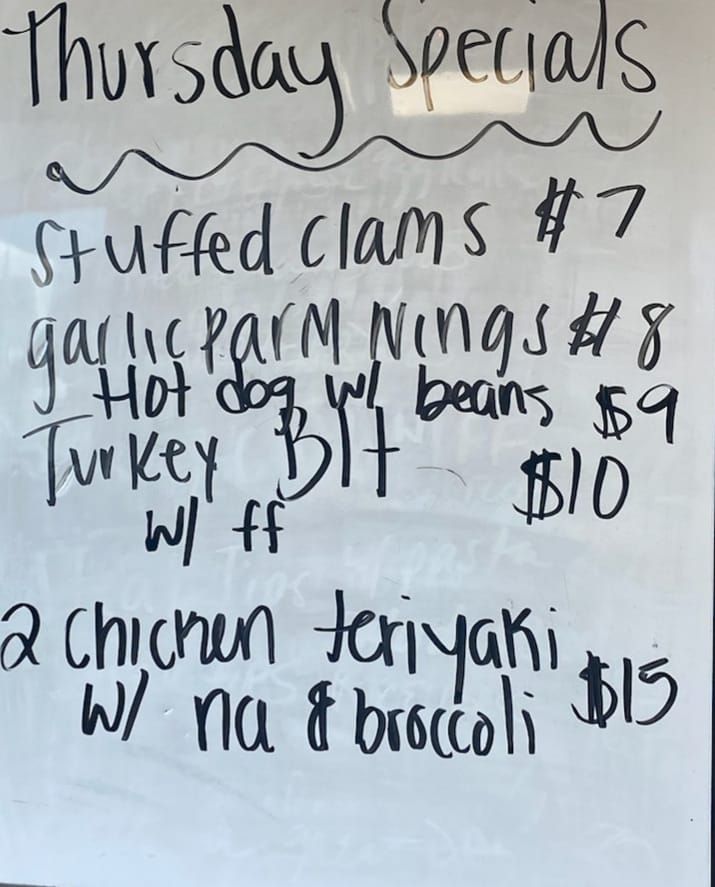 Thursday Specials
Stuffed clams $7
garlic parm wings $8
Hot dog w/ beans $9
Turkey Blt $10
w/ ff
2 chicken teriyaki
w/ na & broccoli $15